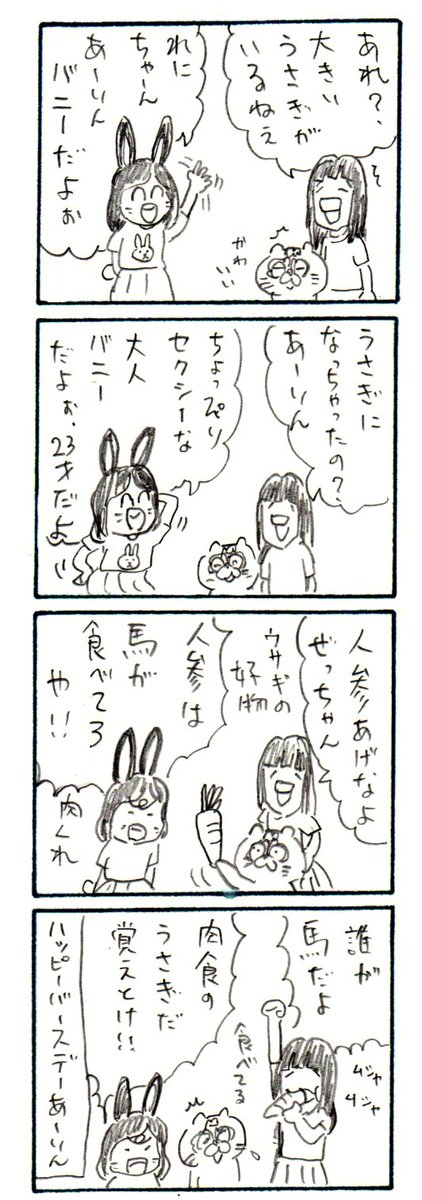 あれ？、
大きい
うさぎが
いるねえ
れに
ちゃーん
あーりん
バニーだよぉ
かわ
いい
うさぎに
なっちゃったの？
あーりん
ちょっぴり
セクシーな
大人
バニー
だよぉ、23才だよ
人参あげなよ
ぜっちゃん
ウサギの
好物
人参は
馬が
食べてろ
や!!
肉くれ
誰が
馬だよ
肉食の
うさぎだ
覚えとけ!!
食べてる
ムシャ
ムシャ
ハッピーバースデーあーりん